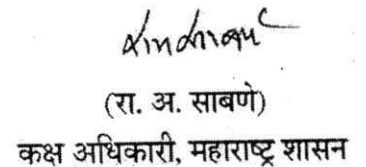 (रा. अ. साबणे)
कक्ष अधिकारी, महाराष्ट्र शासन